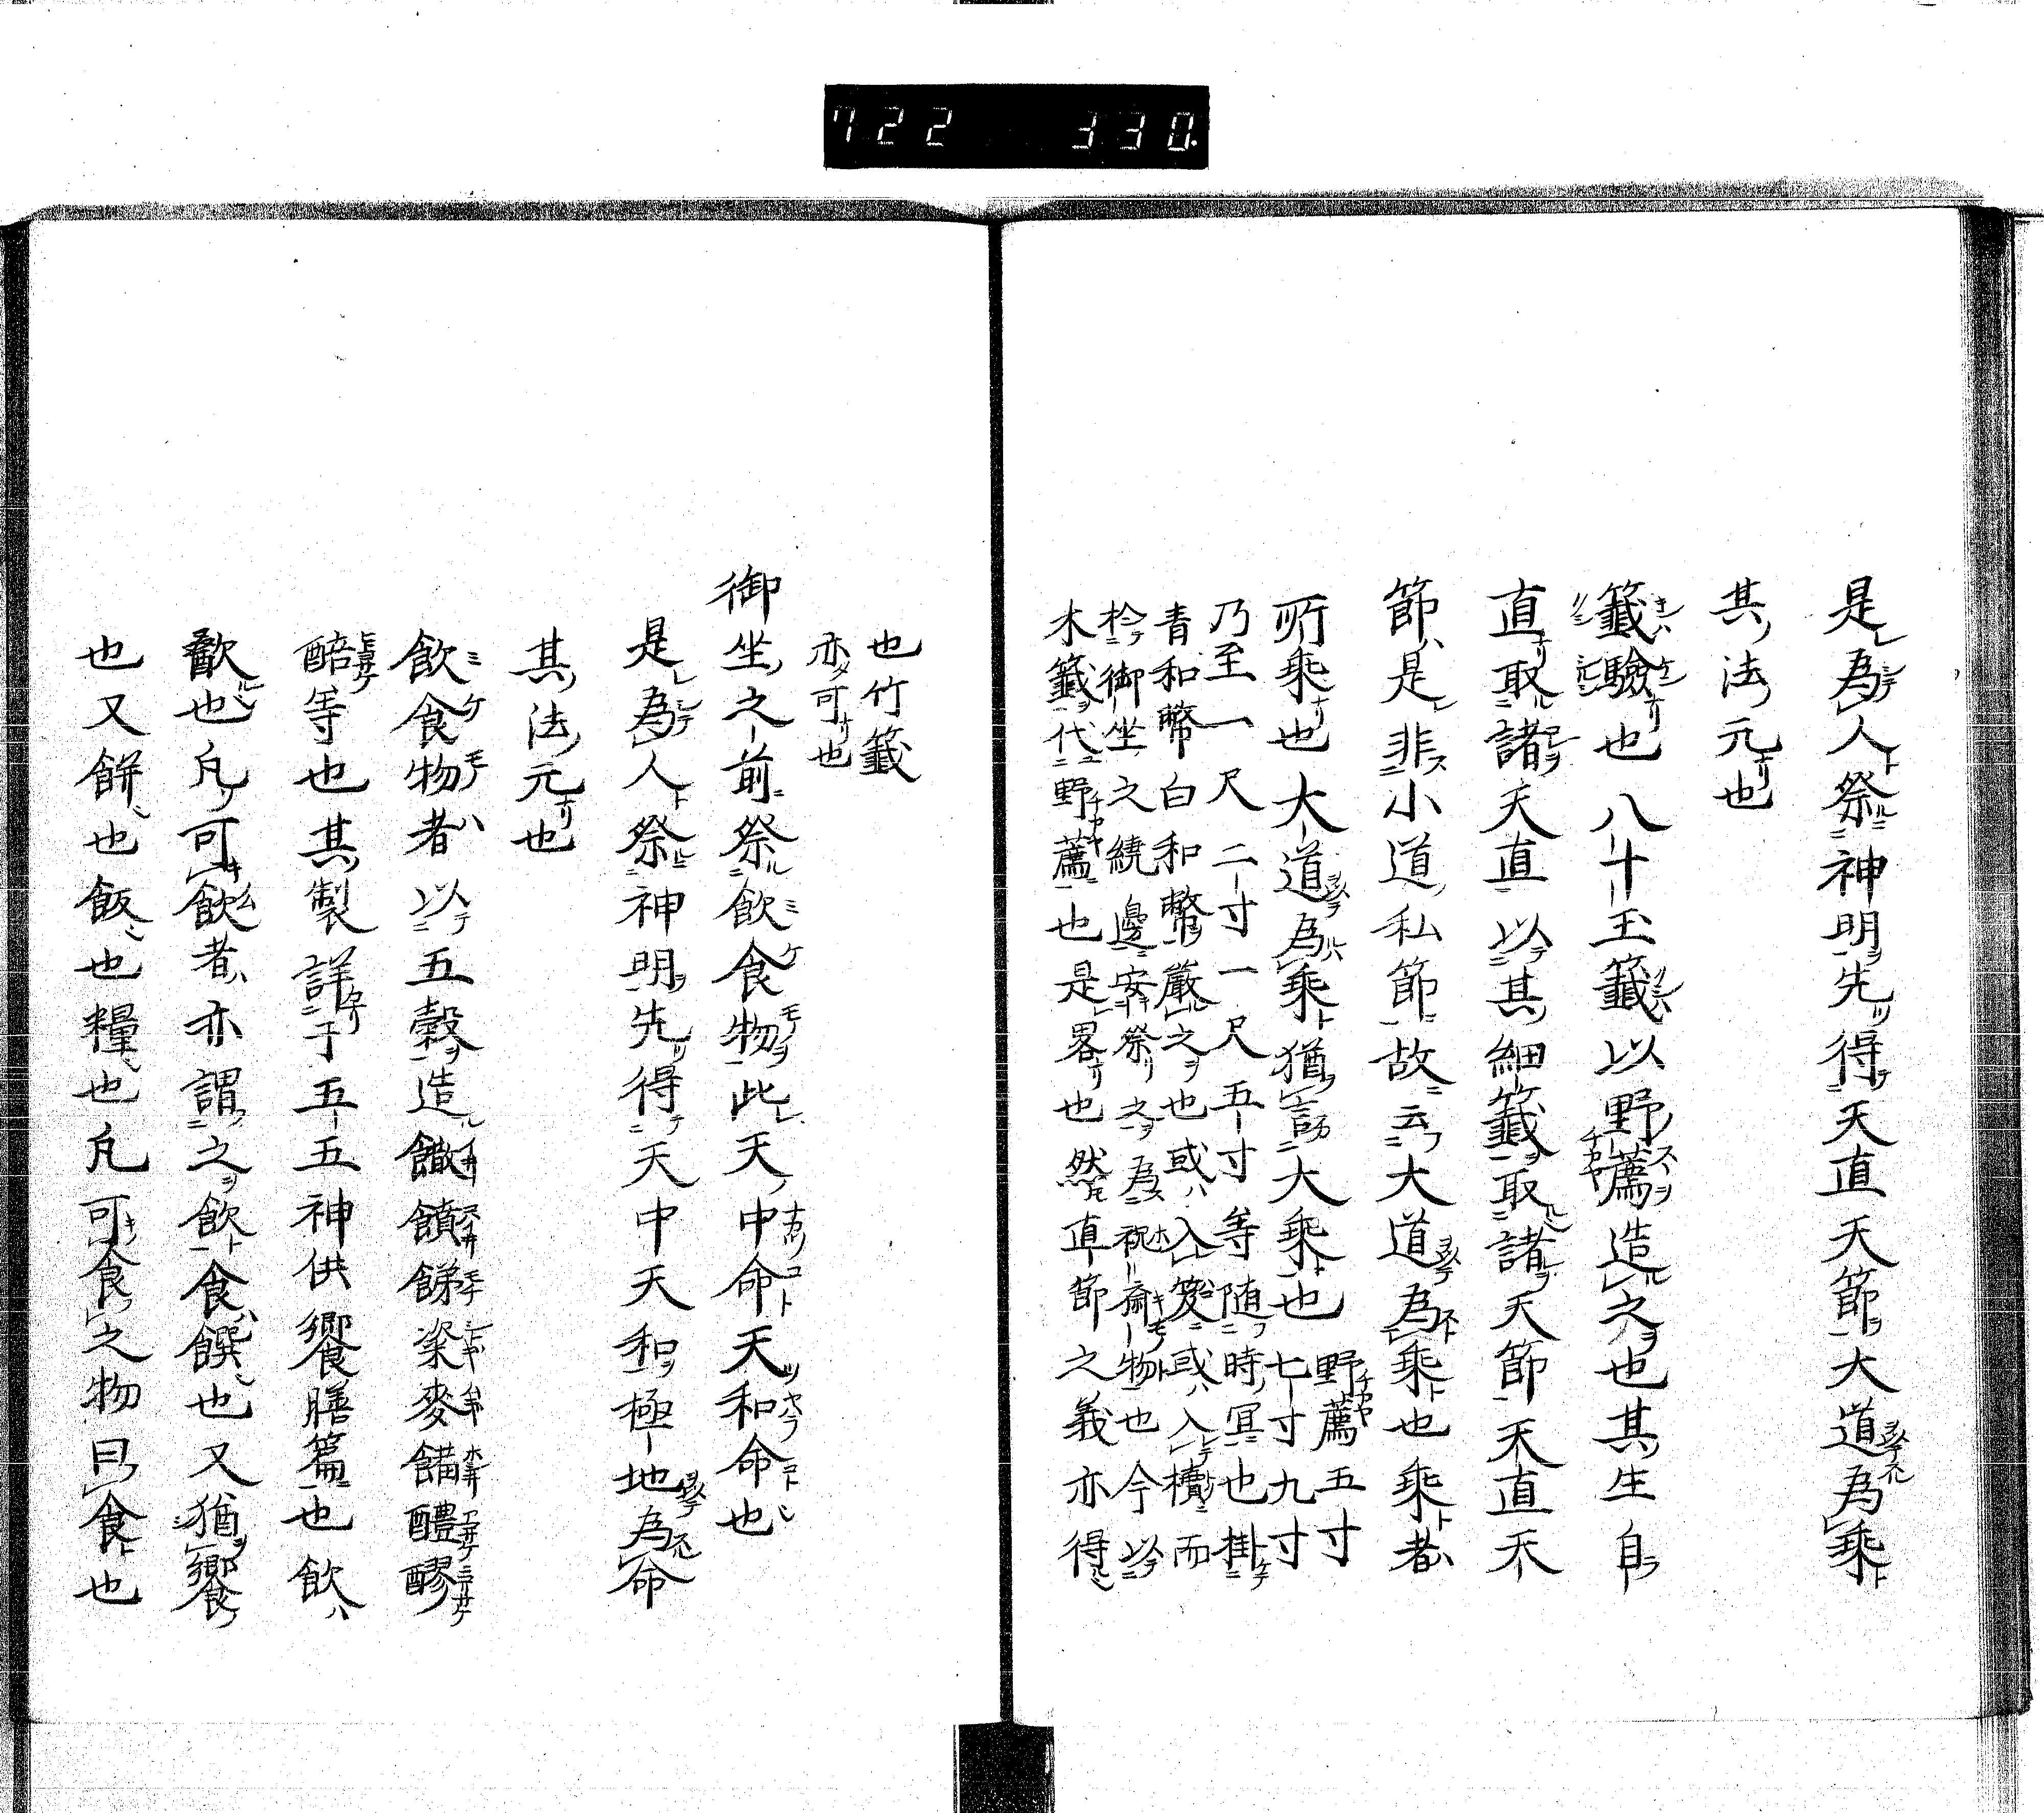 722 330
是為人祭神明先得天直天節大道為乘
其法元也
籤驗也八十玉籤以野薦造之也其生自
直取諸天直以其細籤取諸天節天直天
節是非小道私節故云大道為乘也乘者
所乘也大道為乘猶言大乘也
野薦五寸
七寸九寸
乃至一尺二寸一尺五寸等随時冝也掛
青和幣白和幣嚴之也或入笈或入櫝而
於御坐之繞邊安祭之為祝齋物也今以
木籤代野薦也是畧也然直節之義亦得
也竹籤
亦可也
御坐之前祭飲食物此天中命天和命也
是為人祭神明先得天中天和極地為命
其法元也
飲食物者以五穀造饊饙餳粢麥餔醴醪
醅等也其製詳于五五神供饗膳篇也飲
歠也凢可飲者亦謂之飲食饌也又猶饗
也又餅也飯也糧也凢可食之物曰食也